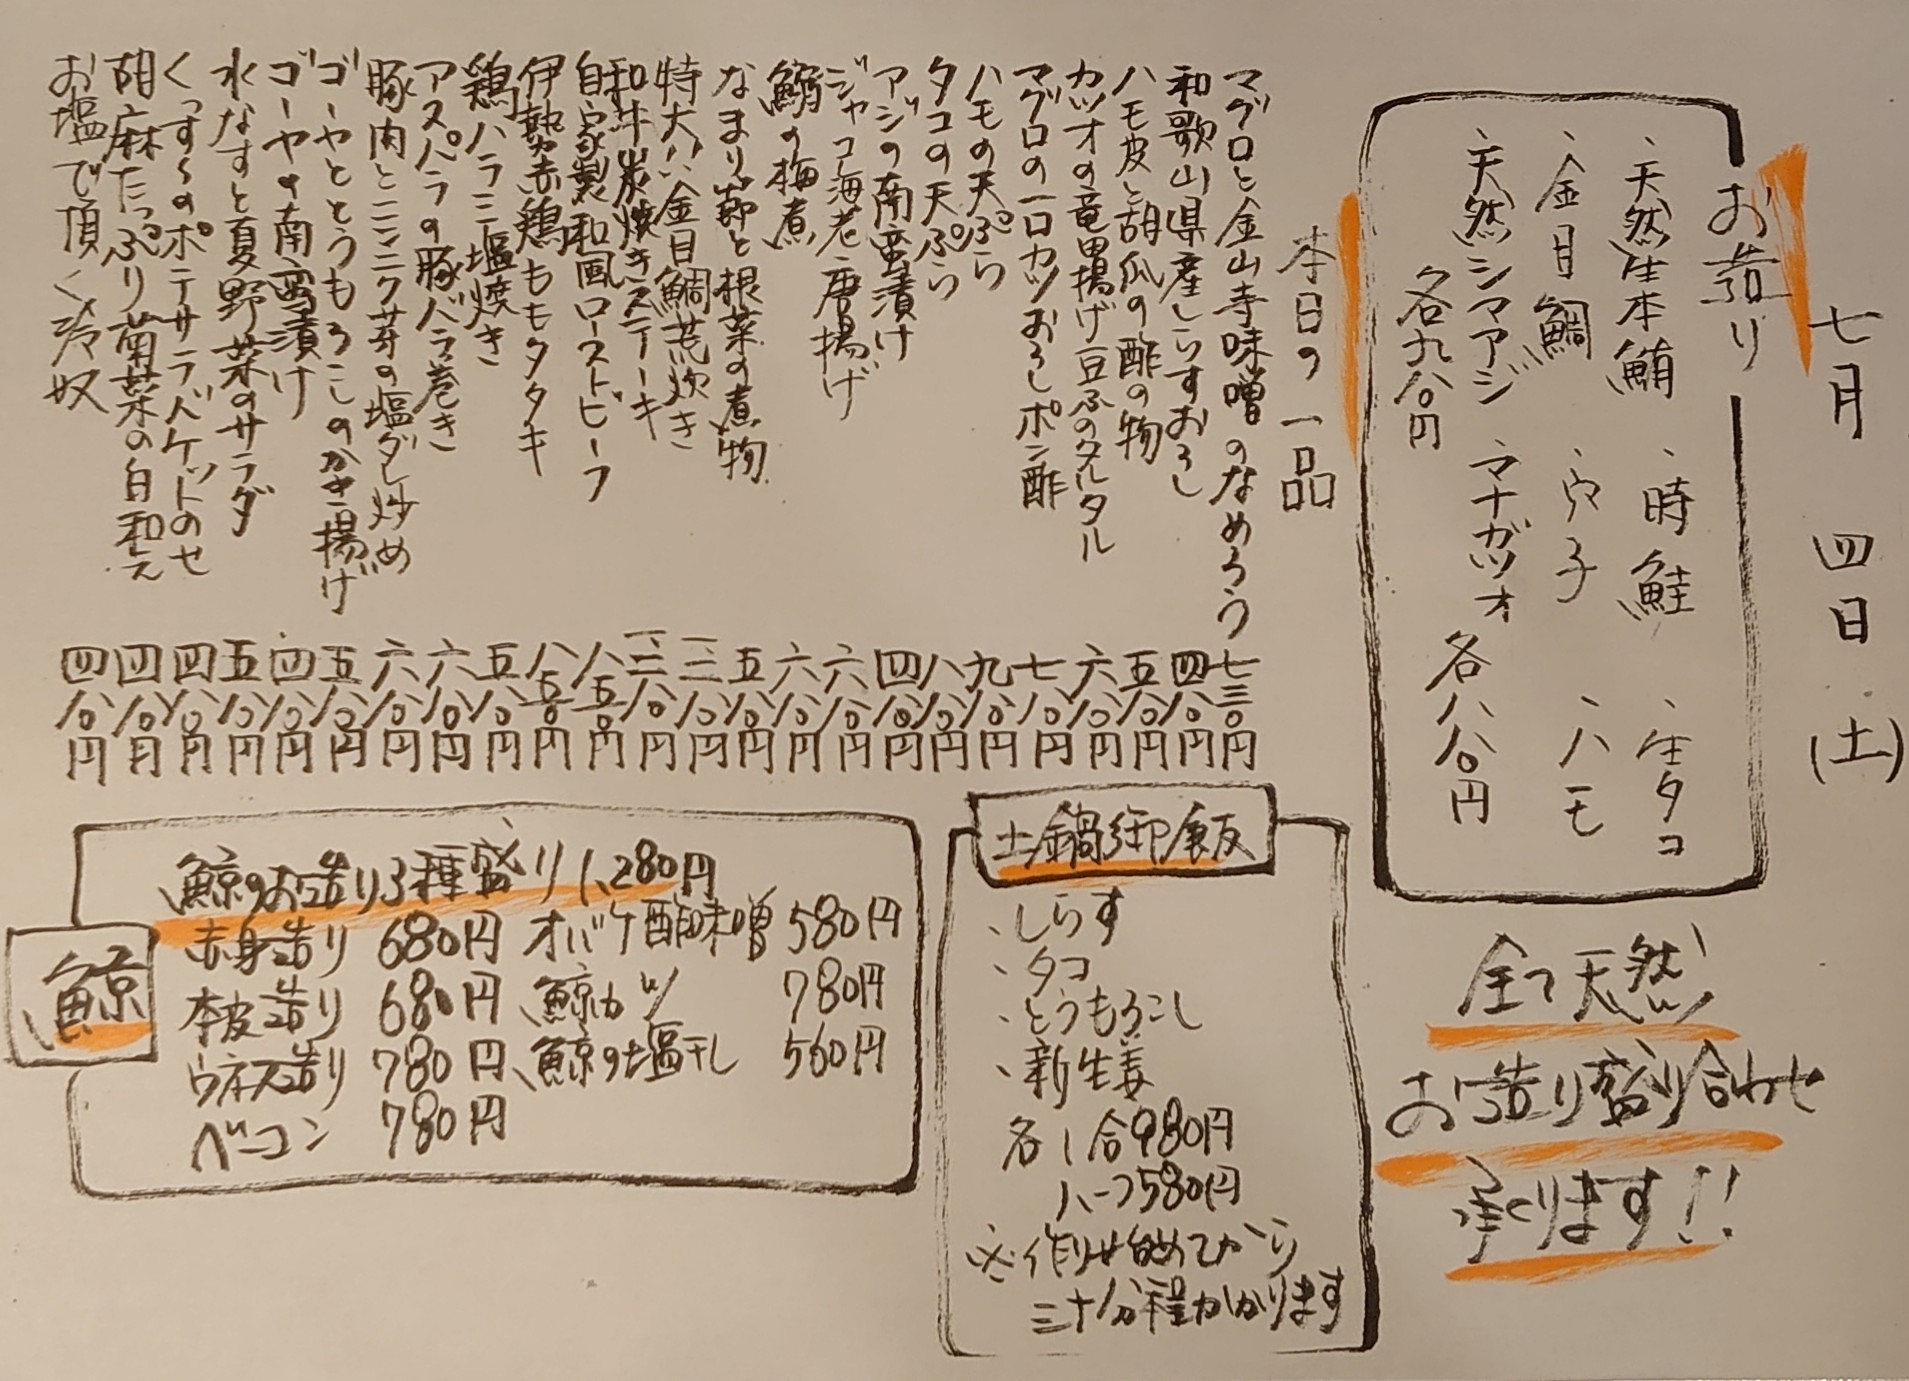 七月 四日 (土)
お造り
、天然生本鮪 、時鮭 、生タコ
、金目鯛 、穴子 、ハモ
、天然シマアジ マナガツオ
各九八〇円 各八八〇円
全て天然
お造り盛り合わせ
承ります!!
本日の一品
マグロと金山寺味噌のなめろう 七三〇円
和歌山県産しらすおろし 四八〇円
ハモ皮と胡瓜の酢の物 五八〇円
カツオの竜田揚げ豆ふのタルタル 六八〇円
マグロの一口カツおろしポン酢 七八〇円
ハモの天ぷら 九八〇円
タコの天ぷら 八八〇円
アジの南蛮漬け 四八〇円
ジャコ海老唐揚げ 六八〇円
鰯の梅煮 六八〇円
なまり節と根菜の煮物 五八〇円
特大!!金目鯛荒炊き
和牛炭焼きステーキ
自家製和風ローストビーフ 八五〇円
伊勢赤鶏ももタタキ 八五〇円
鶏ハラミ塩焼き 五八〇円
アスパラの豚バラ巻き 六八〇円
豚肉とニンニク芽の塩ダレ炒め 六八〇円
ゴーヤととうもろこしのかき揚げ 五八〇円
ゴーヤの南蛮漬け 四八〇円
水なすと夏野菜のサラダ 五八〇円
くっすくのポテサラバケットのせ 四八〇円
胡麻たっぷり菊菜の白和え 四八〇円
お塩で頂く冷奴 四八〇円
土鍋御飯
、しらす
、タコ
、とうもろこし
、新生姜
各1合980円
ハーフ580円
※作り始めてから
三十分程かかります
鯨
鯨のお造り3種盛り 1,280円
赤身造り 680円 オバケ酢味噌 580円
本皮造り 680円 鯨カツ 780円
ウネス造り 780円 鯨の塩干し 560円
ベーコン 780円